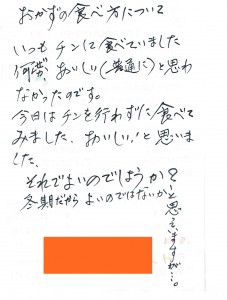 おかずの食べ方について
いつもチンして食べていました
何故、おいしい(普通に)と思わ
なかったのです。
今日はチンを行わずに食べて
みました、おいしい!と思いま
した、
それでよいのでしょうか?
冬期だからよいのではないかと思えますが…。